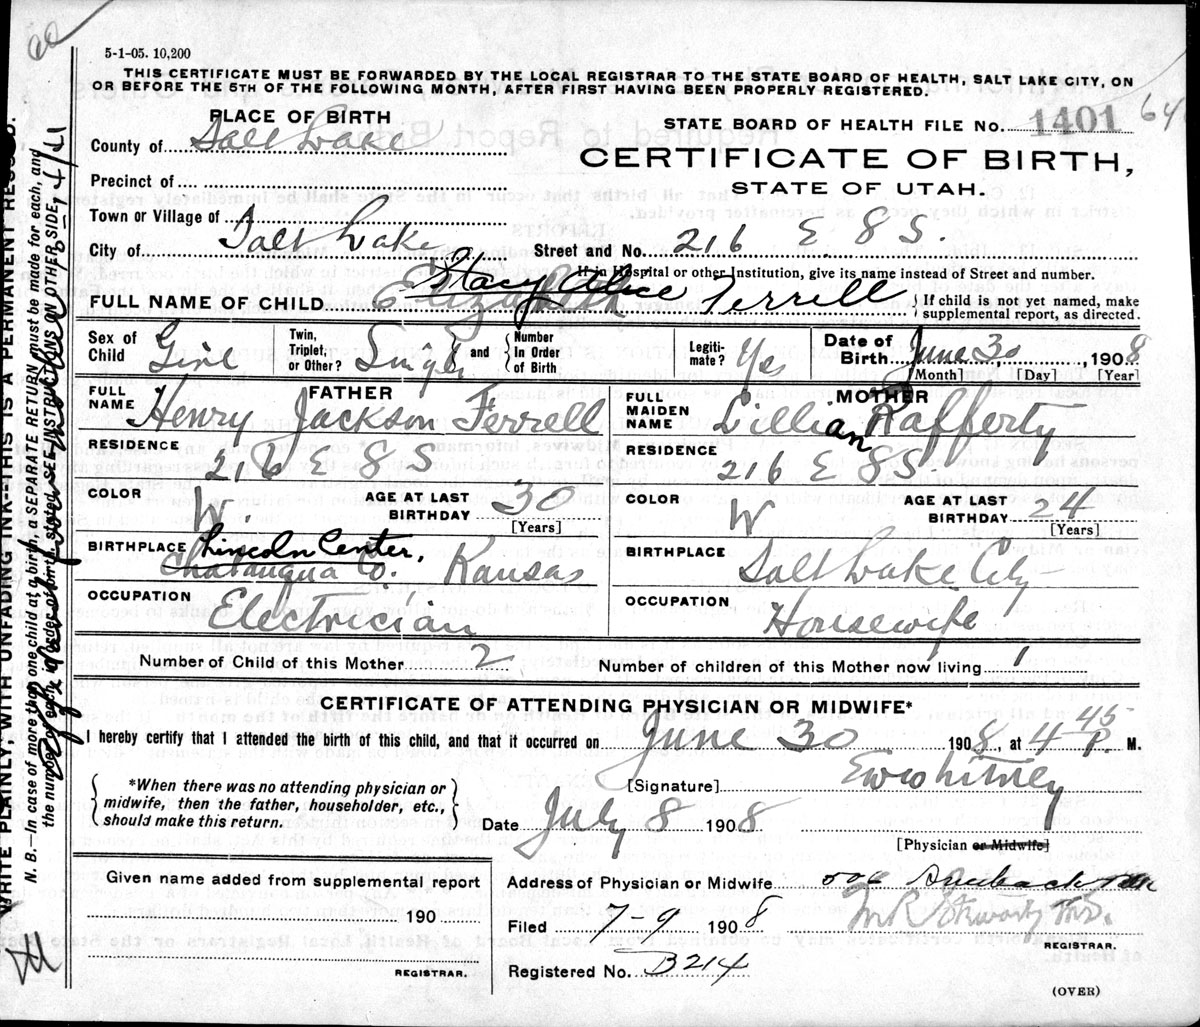 5-1-05. 10,200
THIS CERTIFICATE MUST BE FORWARDED BY THE LOCAL REGISTRAR TO THE STATE BOARD OF HEALTH, SALT LAKE CITY, ON
OR BEFORE THE 5TH OF THE FOLLOWING MONTH, AFTER FIRST HAVING BEEN PROPERLY REGISTERED.
PLACE OF BIRTH
County of Salt Lake
Precinct of
Town or Village of
City of Salt Lake
STATE BOARD OF HEALTH FILE No. 1401
CERTIFICATE OF BIRTH,
STATE OF UTAH.
Street and No. 216 E 8 S.
If in Hospital or other Institution, give its name instead of Street and number.
FULL NAME OF CHILD Elizabeth Stacy Alice Ferrell
{ If child is not yet named, make
supplemental report, as directed.
Sex of Child Girl
Twin, Triplet, or Other? Single
and { Number In Order of Birth
Legiti-mate? Yes
Date of Birth June 30, 1908
[Month] [Day] [Year]
FATHER
FULL NAME Henry Jackson Ferrell
RESIDENCE 216 E 8 S
COLOR W.
AGE AT LAST BIRTHDAY 30 [Years]
BIRTHPLACE Lincoln Center,
Chatauqua Co. Kansas
OCCUPATION Electrician
MOTHER
FULL MAIDEN NAME Lillian Rafferty
RESIDENCE 216 E 8 S
COLOR W
AGE AT LAST BIRTHDAY 24 [Years]
BIRTHPLACE Salt Lake City
OCCUPATION Housewife
Number of Child of this Mother 2
Number of children of this Mother now living 1
CERTIFICATE OF ATTENDING PHYSICIAN OR MIDWIFE*
I hereby certify that I attended the birth of this child, and that it occurred on June 30 1908, at 4 45 P. M.
{ *When there was no attending physician or
midwife, then the father, householder, etc.,
should make this return. }
[Signature] E W Whitney
Date July 8 1908
[Physician or Midwife]
Given name added from supplemental report
190
REGISTRAR.
Address of Physician or Midwife
Filed 7-9 1908
M R Stewart M.D.
REGISTRAR.
Registered No. B214
(OVER)
WRITE PLAINLY, WITH UNFADING INK--THIS IS A PERMANENT RECORD.
N. B.—In case of more than one child at a birth, a SEPARATE RETURN must be made for each, and
the number of each, in order of birth, stated. SEE INSTRUCTIONS ON OTHER SIDE.